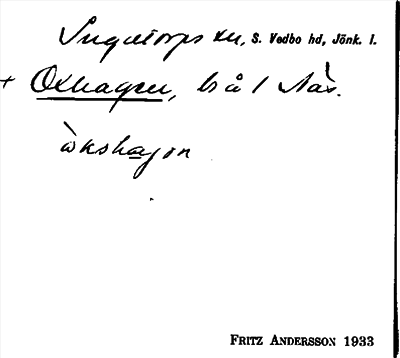 Ingatorps sn, S. Vedbo hd, Jönk. l.
+ Oxhagen, bs å 1 Näs.
òkshagɔn
FRITZ ANDERSSON 1933